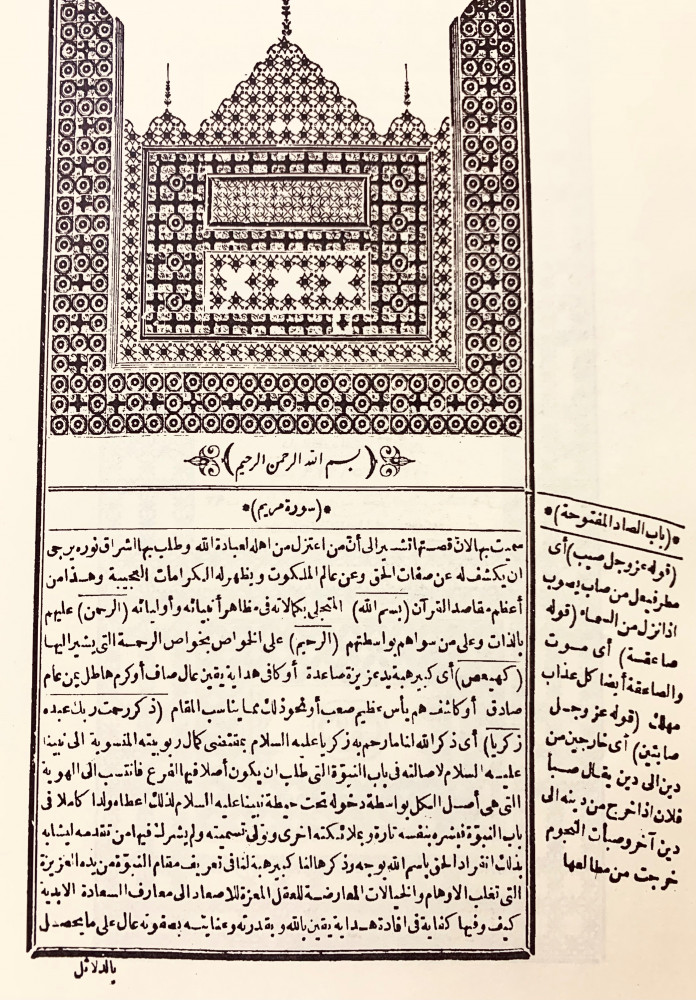 بسم الله الرحمن الرحيم
*(سورة مريم)*
سميت بها لان قصتها تشير الى أن من اعتزل من اهله لعبادة الله وطلب بها اشراق نوره يرجى
ان يكشف له عن صفات الحق وعن عالم الملكوت ويظهر له الكرامات العجيبة وهذا من
أعظم مقاصد القرآن (بسم الله) المتجلى بكمالاته فى مظاهر أنبيائه وأوليائه (الرحمن) عليهم
بالذات وعلى من سواهم بواسطتهم (الرحيم) على الخواص بخواص الرحمة التى يشير اليها
(كهيعص) أى كبير هبة يد عزيزة صاعدة أو كافى هداية يقين عال صاف أو كرم هاطل يمن عام
صادق أو كاشف هم يأس عظيم صعب أو نحو ذلك مما يناسب المقام (ذكر رحمت ربك عبده
زكريا) أى ذكر الله لنا ما رحم به زكريا عليه السلام بمقتضى كمال ربوبيته المنسوبة الى نبينا
عليه السلام لاصالته فى باب النبوة التى طلب ان يكون أصلا فيها الفرع فانتسب الى الهوية
التى هى أصل الكل بواسطة دخوله تحت حيطة نبينا عليه السلام لذلك اعطاه ولدا كاملا فى
باب النبوة فبشره بنفسه تارة وبملائكته اخرى وتولى تسميته ولم يشرك فيها من تقدمه ليشابه
بذلك انفراد الحق باسم الله بوجه وذكرها لنا كبير هبة لنا فى تعريف مقام النبوة من يده العزيزة
التى تغلب الاوهام والخيالات المعارضة للعقل المعزة للاصعاد الى معارف السعادة الابدية
كيف وفيها كفاية فى افادة هداية يقين بالله وبقدرته وعنايته بصفوته عال على ما يحصل
بالدلائل
*(باب الصاد المفتوحة)*
(قوله عز وجل صيب) أى
مطر فيعل من صاب يصوب
اذا نزل من السماء (قوله
صاعقة) أى موت
والصاعقة أيضا كل عذاب
مهلك (قوله عز وجل
صابئين) أى خارجين من
دين الى دين يقال صبأ
فلان اذا خرج من دينه الى
دين آخر وصبأت النجوم
خرجت من مطالعها